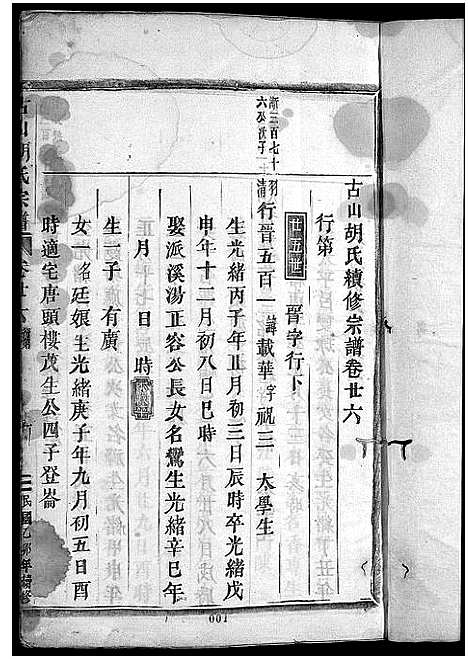 古山胡氏續修宗譜卷廿六
行第
廿五世 晉字行下
浙三百七十
六公次子 清行晉五百一諱載華字祝三 太學生
生光緒丙子年正月初三日辰時卒光緒戊
申年十二月初八日巳時
娶派溪湯正容公長女名鸞生光緒辛巳年
正月 日 時
生一子 有廣
女一名廷娘生光緒庚子年九月初五日酉
時適宅唐頭樓茂生公四子登崙
古山胡氏宗譜 卷廿六
民國乙卯年續修
001